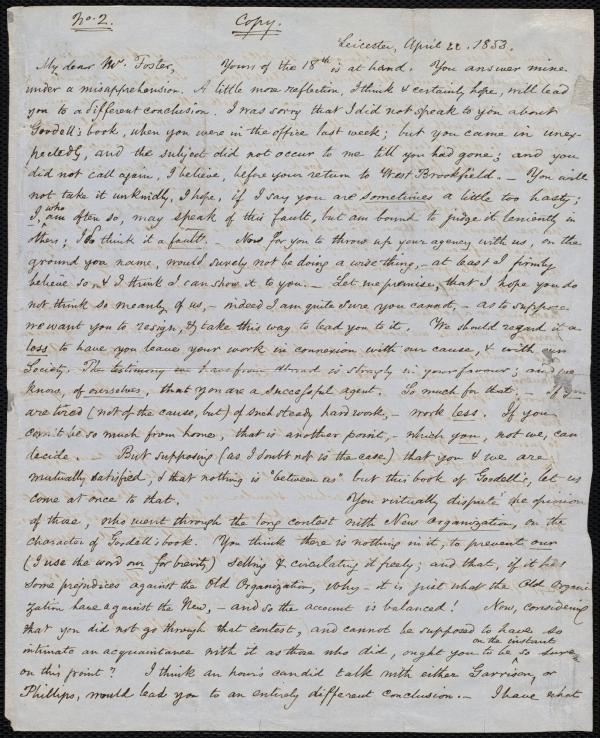 No. 2.
Copy.
Leicester, April 22. 1853.
My dear Mr. Foster, Yours of the 18th is at hand. You answer mine
under a misapprehension. A little more reflection, I think & certainly hope, will lead
you to a different conclusion. I was sorry that I did not speak to you about
Goodell's book, when you were in the office last week; but you came in unex-
pectedly, and the subject did not occur to me till you had gone; and you
did not call again, I believe, before your return to West Brookfield. — You will
not take it unkindly, I hope, if I say you are sometimes a little too hasty;
I, who am often so, may speak of this fault, but am bound to judge it leniently in
others; I do think it a fault. — Now for you to throw up your agency with us, on the
ground you name, would surely not be doing a wise thing, — at least I firmly
believe so, & I think I can show it to you. — Let me premise, that I hope you do
not think so meanly of us, — indeed I am quite sure you cannot, — as to suppose
we want you to resign, & take this way to lead you to it. We should regard it a
loss to have you leave your work in connexion with our cause, & with our
Society. The testimony we have from abroad is strongly in your favour; and we
know, of ourselves, that you are a successful agent. So much for that. — If you
are tired (not of the cause, but) of such steady hard work, — work less. If you
can't be so much from home, that is another point, — which you, not we, can
decide. — But supposing (as I doubt not is the case) that you & we are
mutually satisfied, & that nothing is "between us" but this book of Goodell's, let us
come at once to that. You virtually dispute the opinion
of those, who went through the long contest with New Organization, on the
character of Goodell's book. You think there is nothing in it, to prevent our
(I use the word our for brevity) selling & circulating it freely; and that, if it has
some prejudices against the Old Organization, why — it is just what the Old Organi-
zation have against the New, — and so the account is balanced! Now, considering
that you did not go through that contest, and cannot be supposed to have so
intimate an acquaintance with it as those who did, ought you to be so sure
on the instant
on this point? I think an hour's candid talk with either Garrison, or
Phillips, would lead you to an entirely different conclusion. — I have what